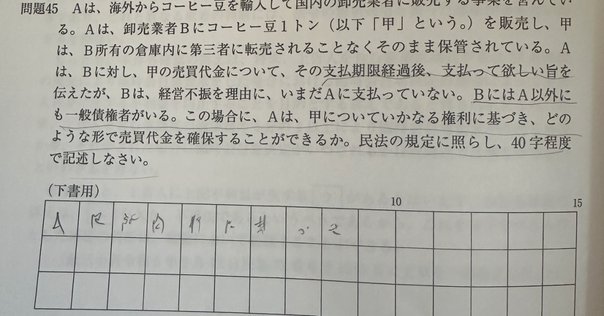 問題45　Aは、海外からコーヒー豆を輸入して国内の卸売業者に販売する事業を営んでい
る。Aは、卸売業者Bにコーヒー豆1トン（以下「甲」という。）を販売し、甲
は、B所有の倉庫内に第三者に転売されることなくそのまま保管されている。A
は、Bに対し、甲の売買代金について、その支払期限経過後、支払って欲しい旨を
伝えたが、Bは、経営不振を理由に、いまだAに支払っていない。BにはA以外に
も一般債権者がいる。この場合に、Aは、甲についていかなる権利に基づき、どの
ような形で売買代金を確保することができるか。民法の規定に照らし、40字程度
で記述しなさい。
（下書用）
10　15
A